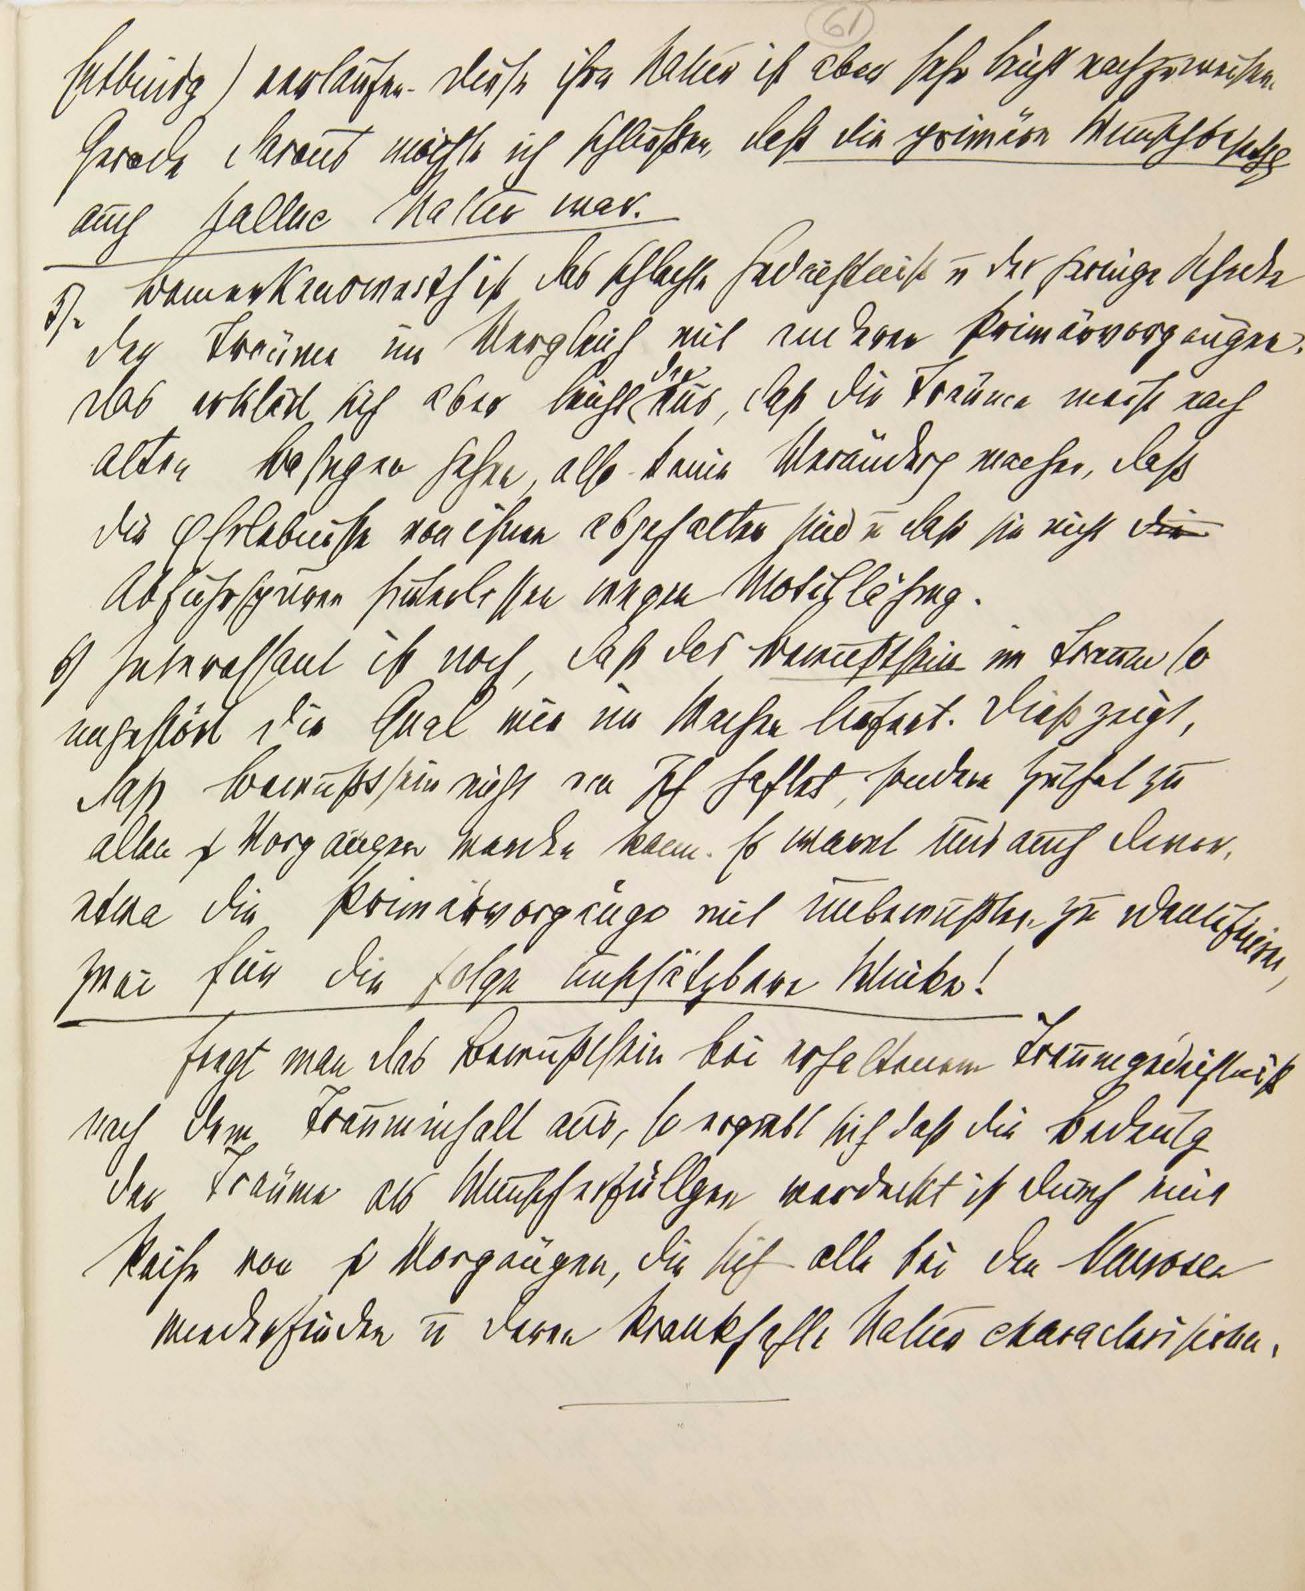 61
Entbindg) verlaufen. Diese ihre Natur ist aber sehr leicht nachzuweisen.
Gerade daraus möchte ich schließen, daß die primäre Wunschbesetzg
auch halluc Natur war.
5). Bemerkenswerth ist das schlechte Gedächtniß u der geringe Schade
der Träume im Vergleich mit anderen Primärvorgängen.
Das erklärt sich aber leicht daraus, daß die Träume meist nach
alten Bahngen gehen, also keine Veränderg machen, daß
die φ Erlebnisse von ihnen abgehalten sind u daß sie nicht die
Abfuhrspuren hinterlassen wegen Motillähmg.
6) Interessant ist noch, daß das Bewußtsein im Traum so
ungestört die Qual wie im Wachen liefert. Dieß zeigt,
daß Bewußtsein nicht am Ich haftet, sondern Zuthat zu
allen ψ Vorgängen werden kann. Es warnt uns auch davor,
etwa die Primärvorgänge mit unbewußten zu identifiziren,
zwei für die Folge unschätzbare Winke!
Fragt man das Bewußtsein bei erhaltenem Traumgedächtniß
nach dem Trauminhalt aus, so ergiebt sich daß die Bedeutg
der Träume als Wunscherfüllgen verdeckt ist durch eine
Reihe von ψ Vorgängen, die sich alle bei den Neurosen
wiederfinden u deren krankhafte Natur characterisiren.